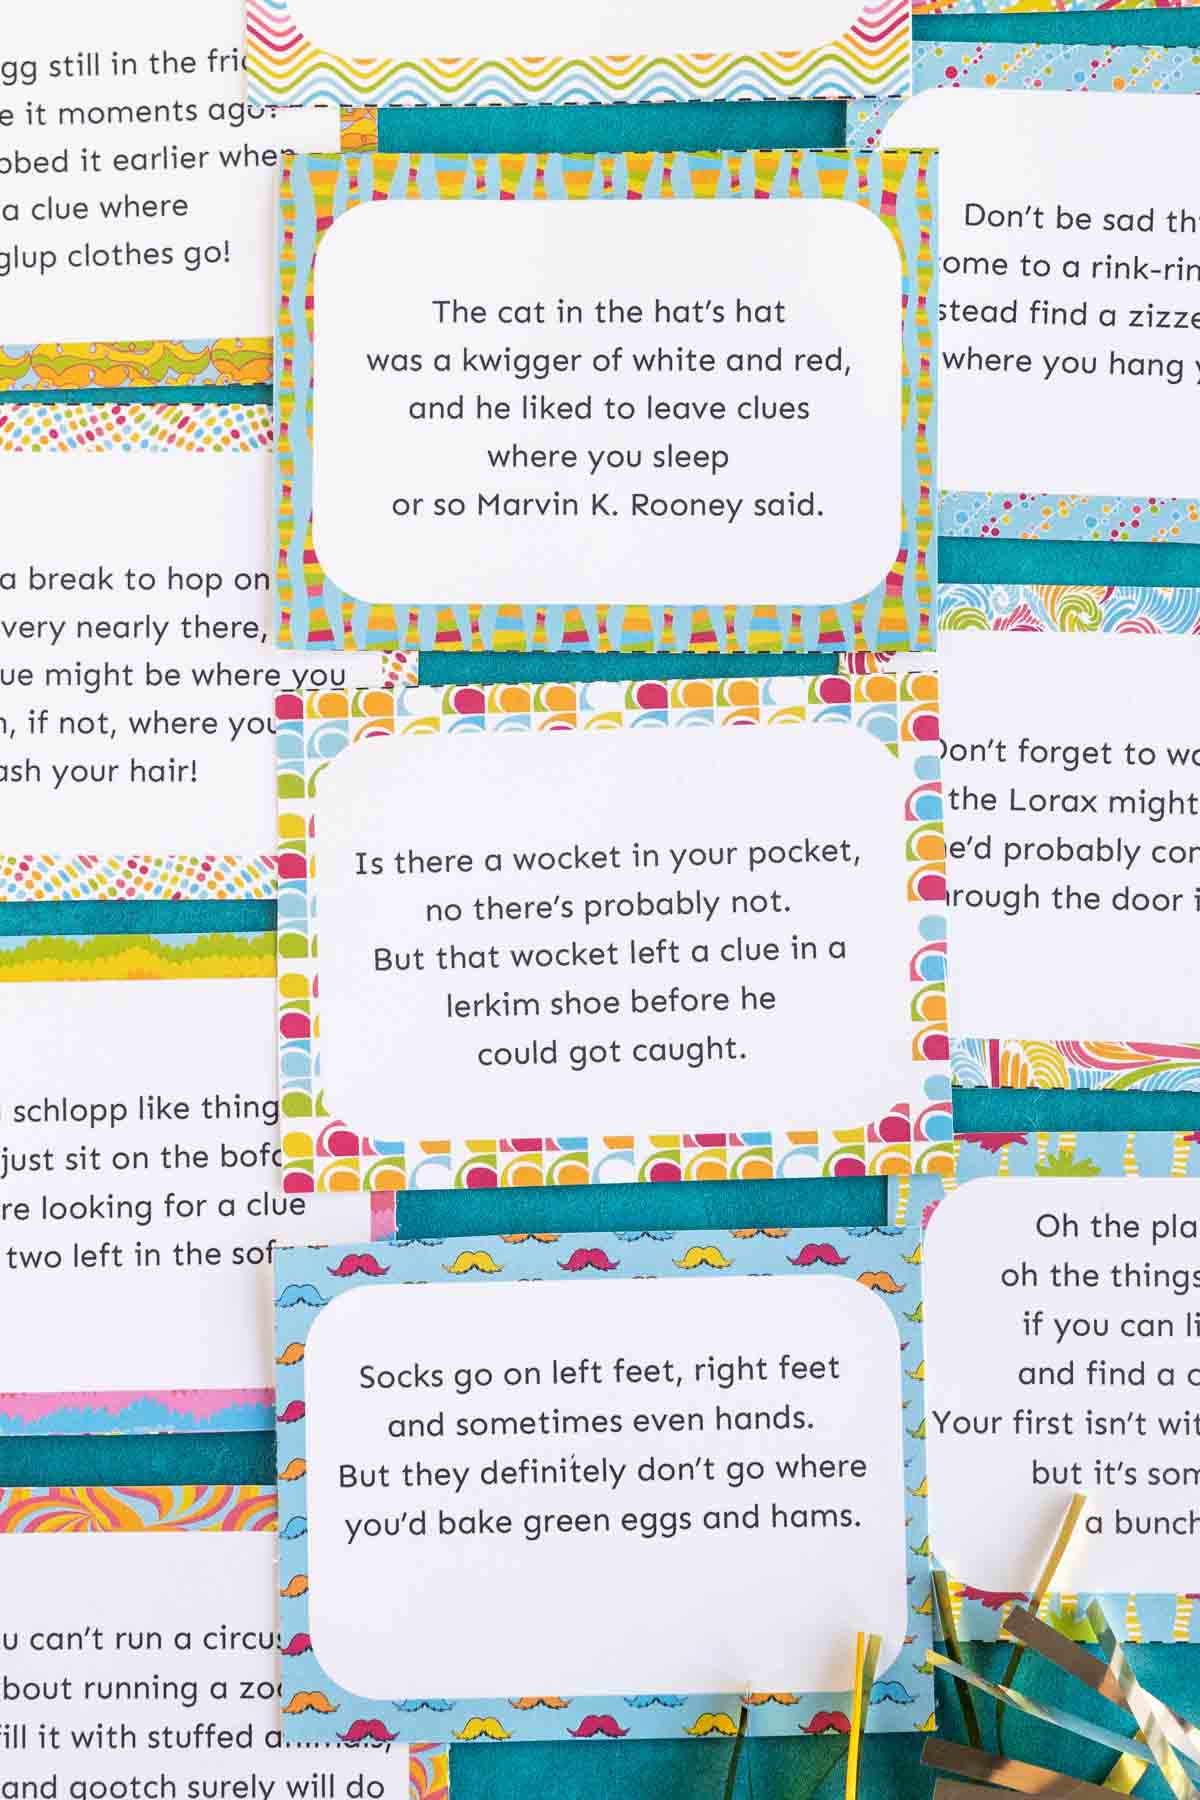 gg still in the
e it moments ago?
bbed it earlier when
a clue where
glup clothes go!
a break to hop on
very nearly there,
ue might be where you
, if not, where you
ash your hair!
schlopp like thing
just sit on the
re looking for a clue
two left in the
u can't run a
bout running a
ill it with stuffed
and gootch surely will do
The cat in the hat's hat
was a kwigger of white and red,
and he liked to leave clues
where you sleep
or so Marvin K. Rooney said.
Is there a wocket in your pocket,
no there's probably not.
But that wocket left a clue in a
lerkim shoe before he
could got caught.
Socks go on left feet, right feet
and sometimes even hands.
But they definitely don't go where
you'd bake green eggs and hams.
Don't be sad th
ome to a rink-rin
stead find a zizze
where you hang y
Don't forget to
the Lorax might
e'd probably
rough the door
Oh the pla
oh the things
if you can li
and find a
Your first isn't wit
but it's som
a bunch